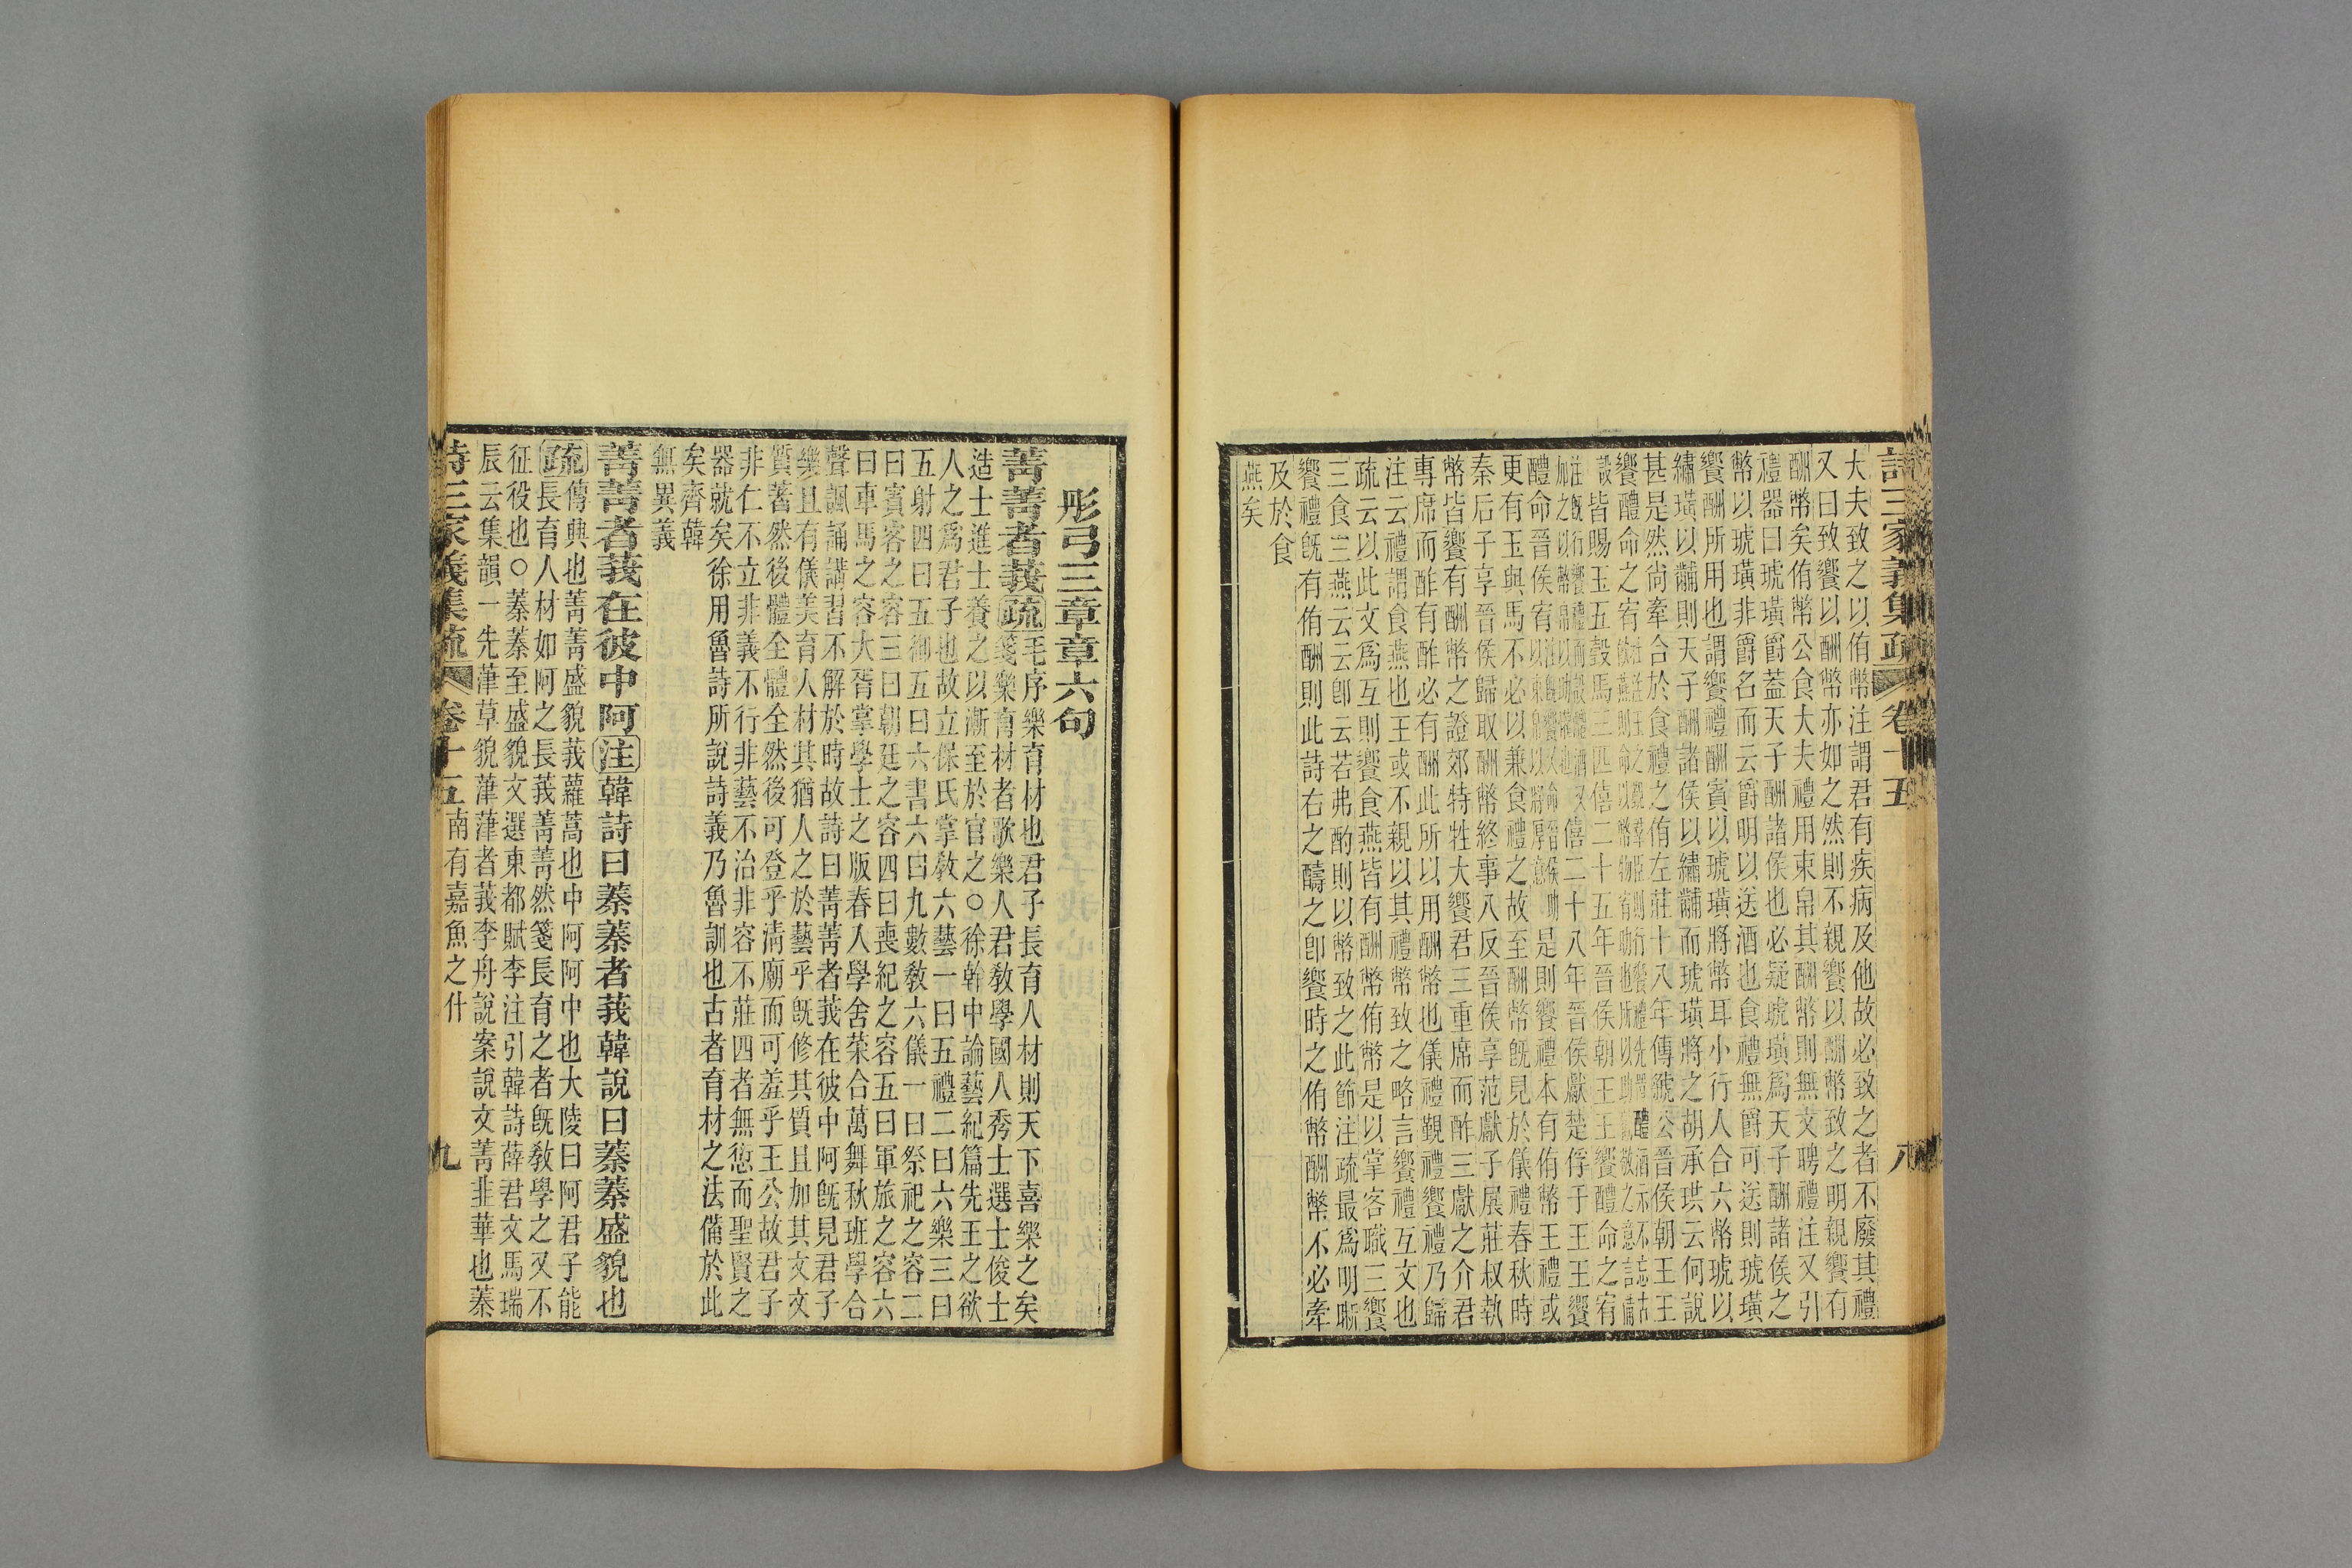 詩三家義集疏 卷十五 八
大夫致之以侑幣注謂君有疾病及他故必致之者不廢其禮
又曰致饗以酬幣亦如之然則不親饗以酬幣致之明親饗有
酬幣矣侑幣公食大夫禮用束帛其酬幣則無文聘禮注又引
禮器曰琥璜爵蓋天子酬諸侯也必疑琥璜爲天子酬諸侯之
幣以琥璜非爵名而云爵明以送酒也食禮無爵可送則琥璜
饗酬所用也謂饗禮酬賓以琥璜將幣耳小行人合六幣琥以
繡璜以黼則天子酬諸侯以繡黼而琥璜將之胡承珙云何說
甚是然尚牽合於食禮之侑左莊十八年傳虢公晉侯朝王王
饗醴命之宥
皆賜玉五瑴馬三匹僖二十五年晉侯朝王王饗醴命之宥
僖二十八年晉侯獻楚俘于王王饗
醴命晉侯宥
是則饗禮本有侑幣王禮或
更有玉與馬不必以兼食禮之故至酬幣旣見於儀禮春秋時
秦后子享晉侯歸取酬幣終事八反晉侯享范獻子展莊叔執
幣皆饗有酬幣之證郊特牲大饗君三重席而酢三獻之介君
專席而酢有酢必有酬此所以用酬幣也儀禮覲禮饗禮乃歸
注云禮謂食燕也王或不親以其禮幣致之略言饗禮互文也
疏云以此文爲互則饗食燕皆有酬幣侑幣是以掌客職三饗
三食三燕云云卽云若弗酌則以幣致之此節注疏最爲明晰
饗禮旣有侑酬則此詩右之醻之卽饗時之侑幣酬幣不必牽
及於食
燕矣
彤弓三章章六句
菁菁者莪疏毛序樂育材也君子長育人材則天下喜樂之矣
箋樂育材者歌樂人君敎學國人秀士選士俊士
造士進士養之以漸至於官之○徐幹中論藝紀篇先王之欲
人之爲君子也故立保氏掌敎六藝一曰五禮二曰六樂三曰
五射四曰五御五曰六書六曰九數敎六儀一曰祭祀之容二
曰賓客之容三曰朝廷之容四曰喪紀之容五曰軍旅之容六
曰車馬之容大胥掌學士之版春入學舍菜合萬舞秋班學合
聲諷誦講習不解於時故詩曰菁菁者莪在彼中阿旣見君子
樂且有儀美育人材其猶人之於藝乎旣修其質且加其文文
質著然後體全體全然後可登乎清廟而可羞乎王公故君子
非仁不立非義不行非藝不治非容不莊四者無愆而聖賢之
器就矣徐用魯詩所說詩義乃魯訓也古者育材之法備於此
矣齊韓
無異義
菁菁者莪在彼中阿注韓詩曰蓁蓁者莪韓說曰蓁蓁盛貌也
疏傳興也菁菁盛貌莪蘿蒿也中阿阿中也大陵曰阿君子能
長育人材如阿之長莪菁菁然箋長育之者旣敎學之又不
征役也○蓁蓁至盛貌文選東都賦李注引韓詩薛君文馬瑞
辰云集韻一先葏草貌葏葏者莪李舟說案說文菁韭華也蓁
詩三家義集疏 卷十五 南有嘉魚之什 九